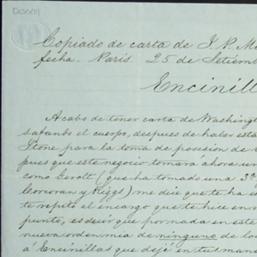 Copiado de carta de J. P. M
fecha. Paris 25 de Setiem
Encinill
Acabo de tener carta de Washingt
safando el cuerpo, despues de haber esta
Stone para la toma de posesion de
pues que este negocio tomará ahora un
como Gerolt (que ha tomado una 3ª
Corcoran y Riggs) me dió que te ha
te repito el encargo que te hice en
punto, es decir que por nada en este
nueva orden mia de ninguno de los
á Encinillas que dejé en tus man